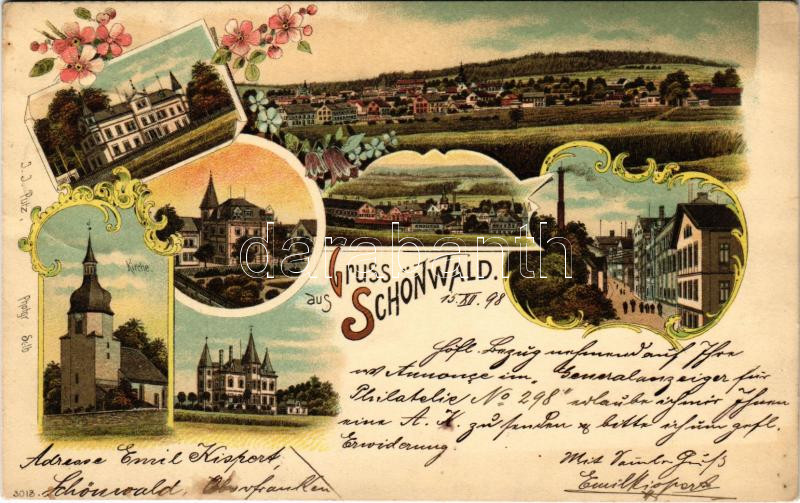 Gruss
aus SCHÖNWALD.
15. XII. 98
Kirche.
S. J. Pütz.
Photog Selb
darabanth
Höfl. Bezug nehmend auf Ihre
w Annonçe im „Generalanzeiger für
Philatelie No 298" erlaube ich mir Ihnen
eine A. K zu senden & bitte ich um gefl.
Erwiderung.
Mit Samler Gruß
Emil Kispert
Adresse Emil Kispert,
Schönwald, Oberfranken
3013